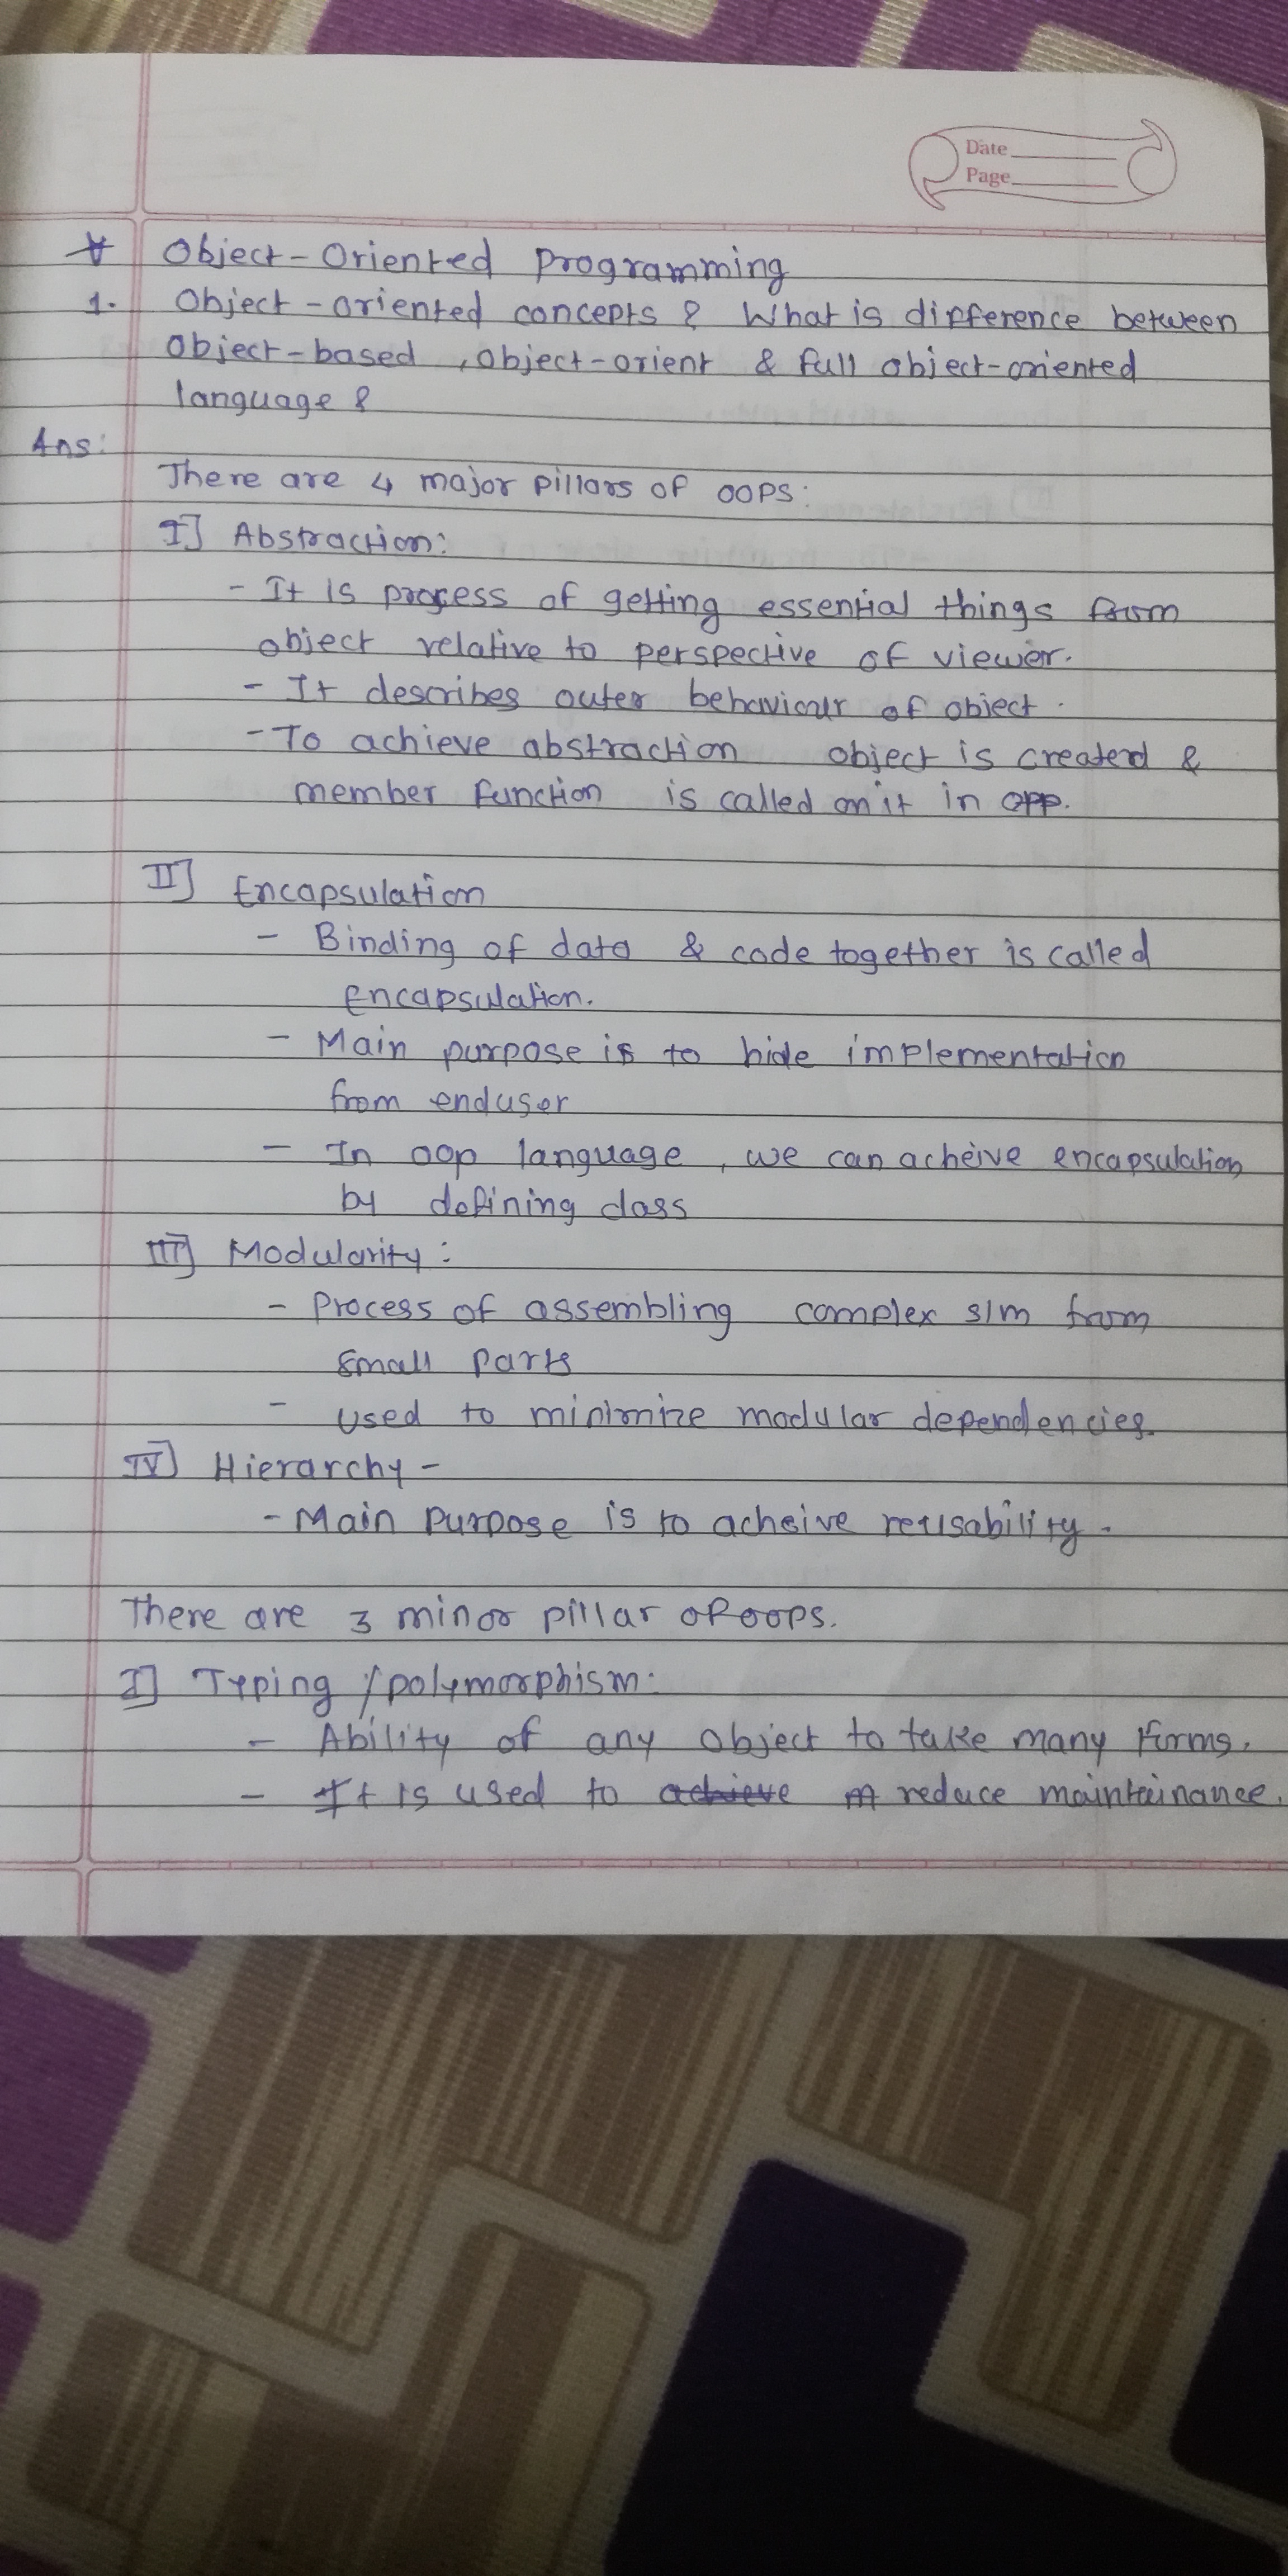 Date
Page
* Object-Oriented Programming
1. Object-oriented concepts ? What is difference between
Object-based, object-orient & full object-oriented
language ?
Ans:
There are 4 major pillars of OOPS:
I] Abstraction:
- It is process of getting essential things from
object relative to perspective of viewer.
- It describes outer behaviour of object.
- To achieve abstraction object is created &
member function is called on it in opp.
II] Encapsulation
- Binding of data & code together is called
encapsulation.
- Main purpose is to hide implementation
from enduser
- In oop language, we can acheive encapsulation
by defining class
III] Modularity:
- Process of assembling complex s/m from
small parts
- used to minimize modular dependencies.
IV] Hierarchy -
- Main Purpose is to acheive reusability.
There are 3 minor pillar of oops.
I] Typing / polymorphism:
- Ability of any object to take many forms.
- It is used to achieve reduce maintainance.